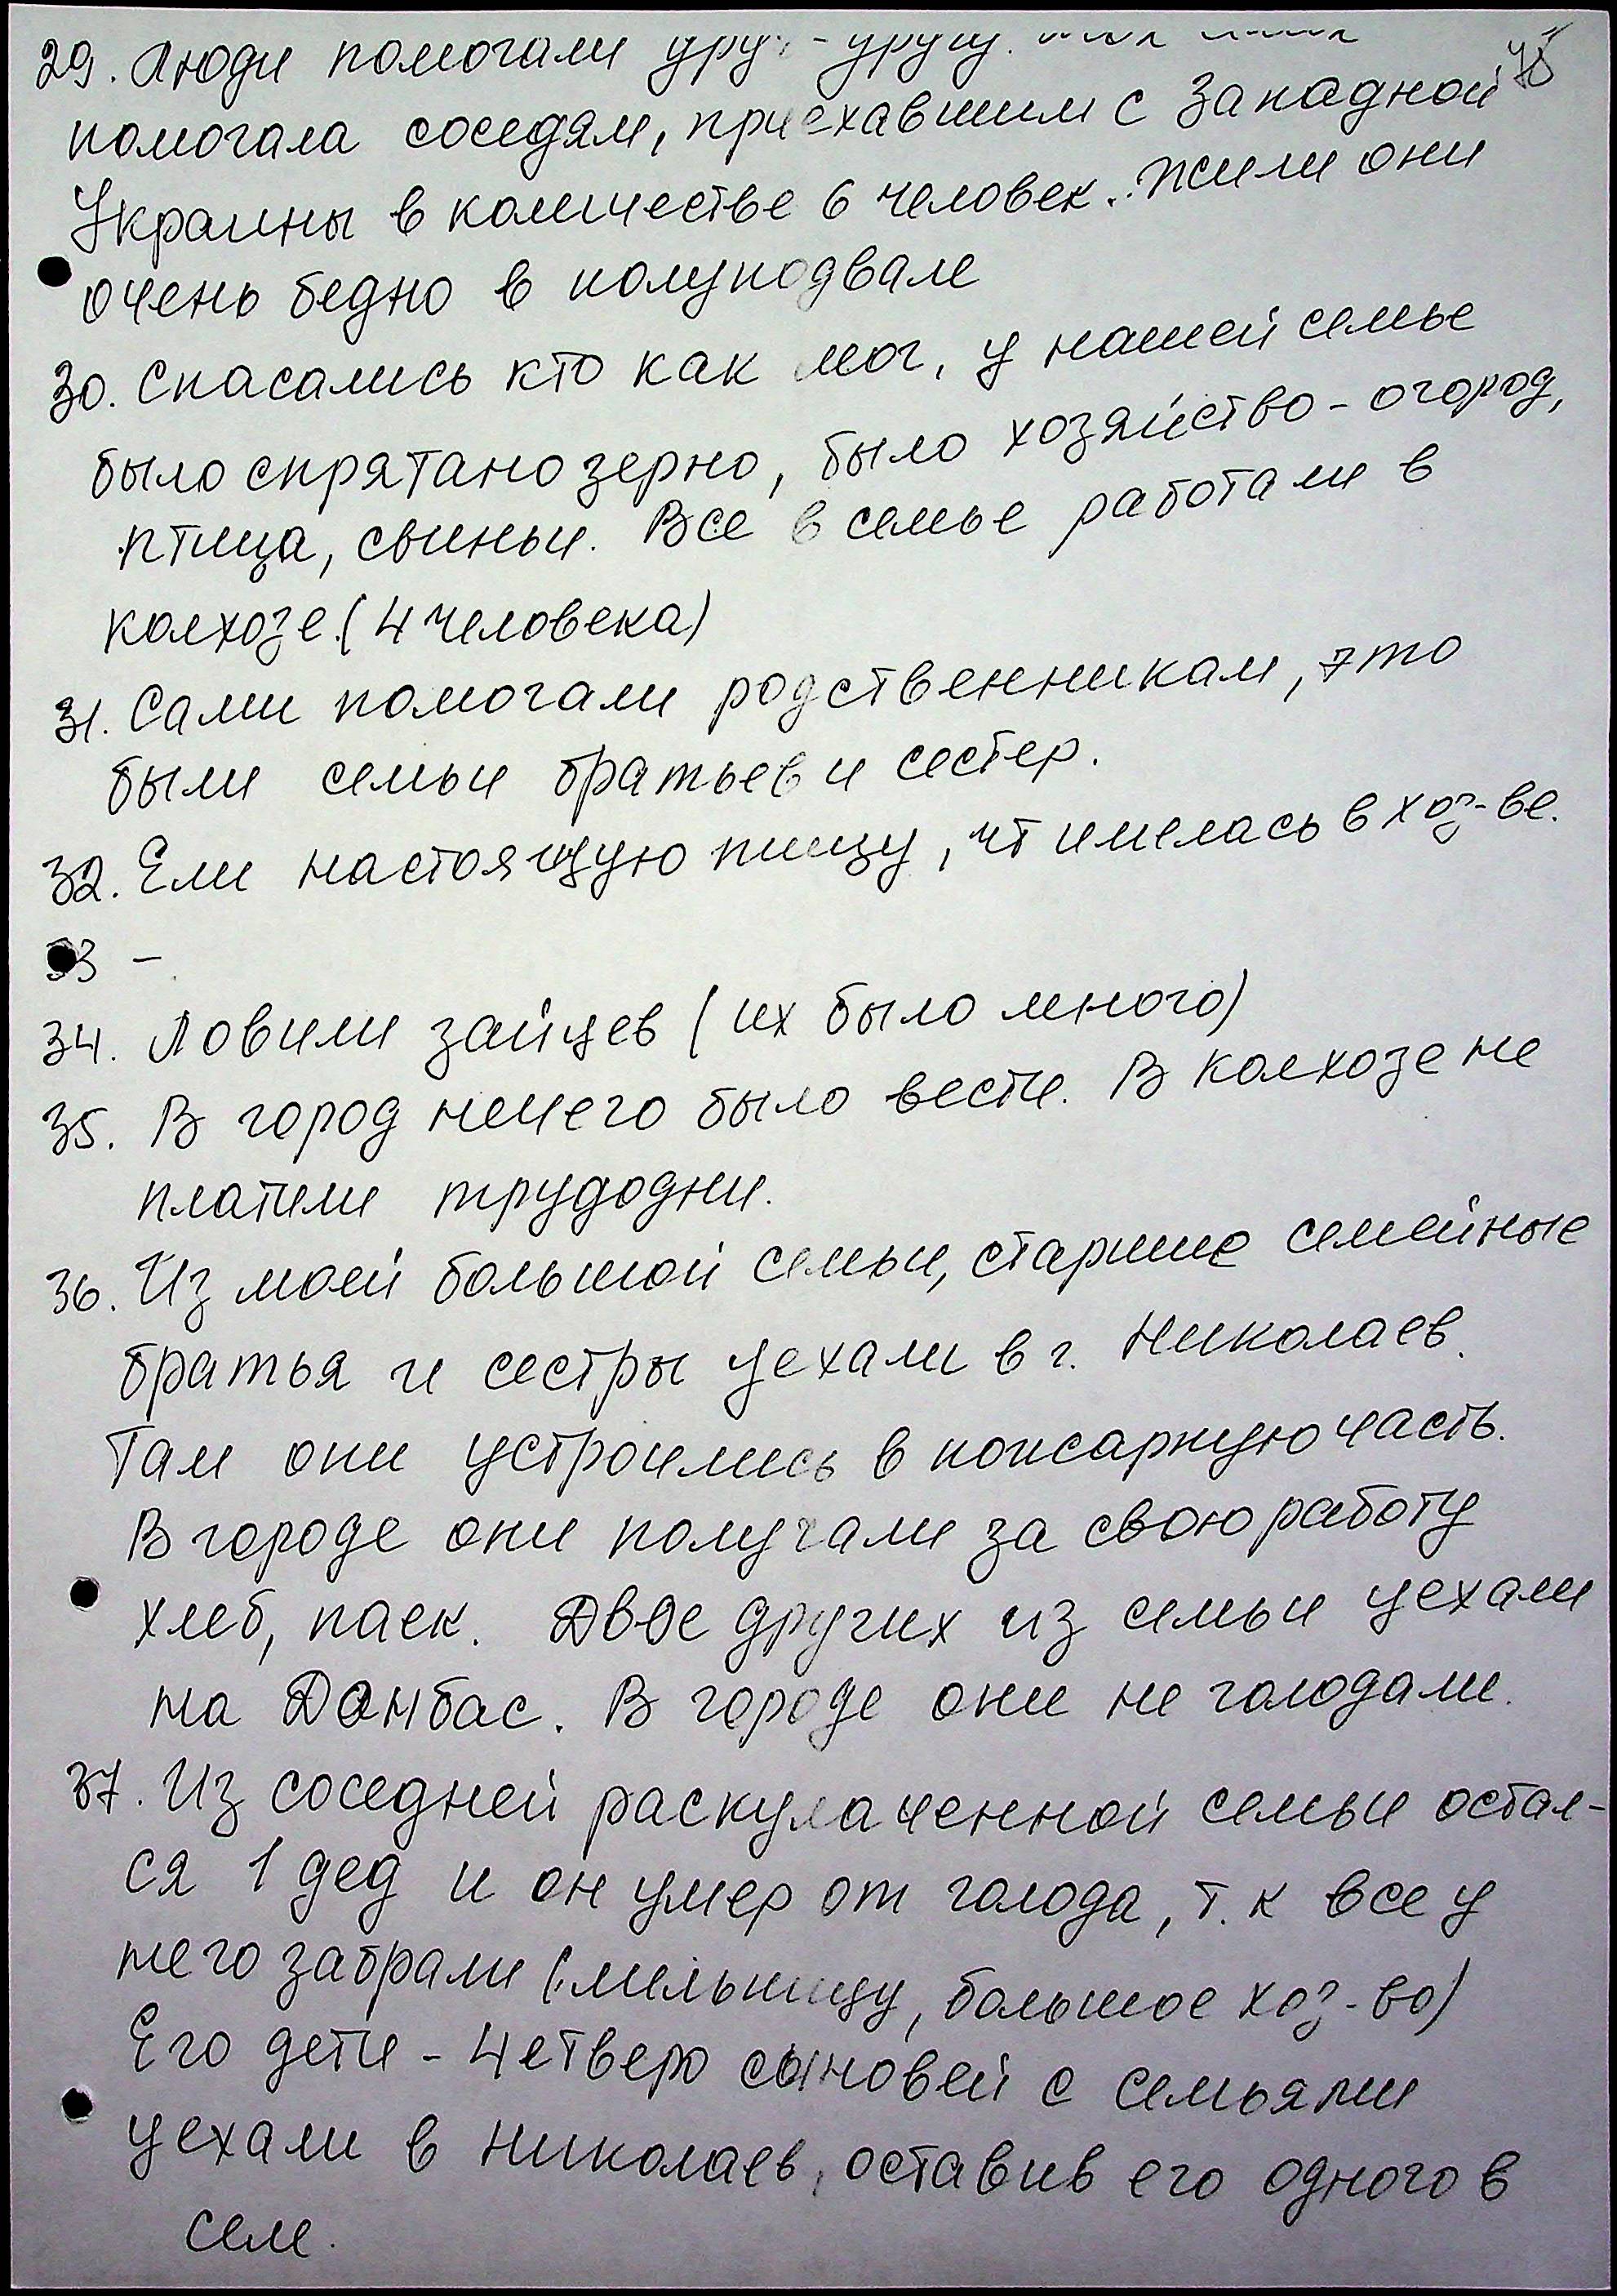 29. Люди помогали друг-другу.
помогала соседям, приехавшим с Западной
Украины в количестве 6 человек. Жили они
очень бедно в полуподвале
30. Спасались кто как мог, у нашей семье
было спрятано зерно, было хозяйство - огород,
птица, свиньи. Все в семье работали в
колхозе. (4 человека)
31. Сами помогали родственникам, это
были семьи братьев и сестер.
32. Ели настоящую пищу, чт имелась в хоз-ве.
33 -
34. Ловили зайцев (их было много)
35. В город нечего было вести. В колхозе не
платили трудодни.
36. Из моей большой семьи, старшие семейные
братья и сестры уехали в г. Николаев.
Там они устроились в пожарную часть.
В городе они получали за свою работу
хлеб, паек. Двое других из семьи уехали
на Донбас. В городе они не голодали.
37. Из соседней раскулаченной семьи остал-
ся 1 дед и он умер от голода, т.к все у
него забрали (мильницу, большое хоз-во)
Его дети - четверо сыновей с семьями
уехали в Николаев, оставив его одного в
селе.